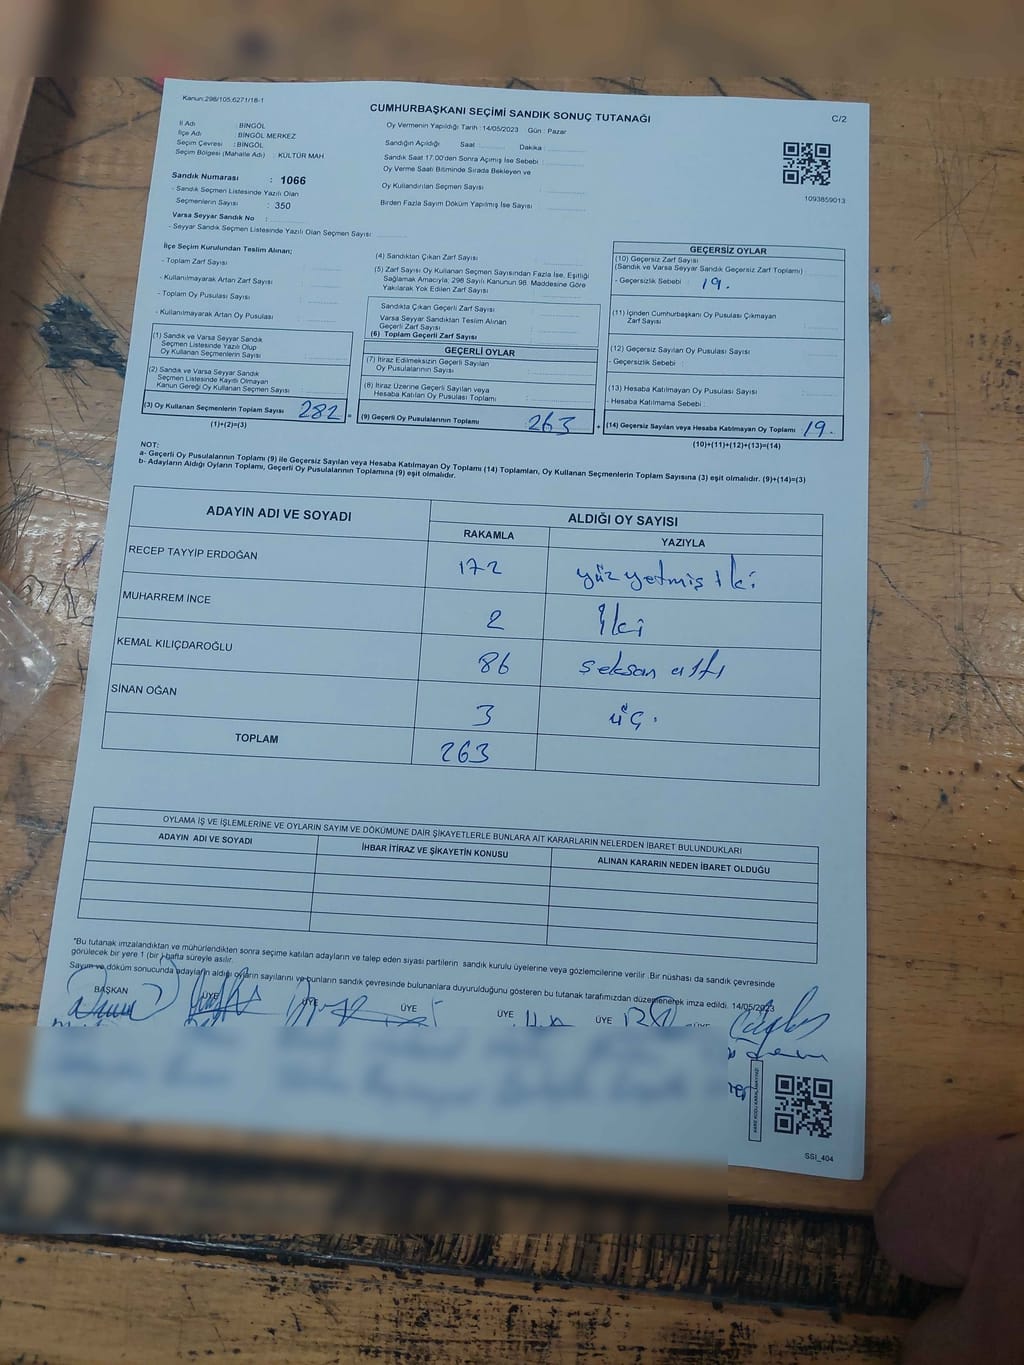 Kanun:298/105:6271/18-1
CUMHURBAŞKANI SEÇİMİ SANDIK SONUÇ TUTANAĞI
C/2
İl Adı : BİNGÖL
İlçe Adı : BİNGÖL MERKEZ
Seçim Çevresi : BİNGÖL
Seçim Bölgesi (Mahalle Adı) : KÜLTÜR MAH
Oy Vermenin Yapıldığı Tarih : 14/05/2023 Gün : Pazar
Sandığın Açıldığı Saat Dakika :
Sandık Saat 17.00'den Sonra Açımış İse Sebebi :
Oy Verme Saati Bitiminde Sırada Bekleyen ve
Oy Kullandırılan Seçmen Sayısı :
Birden Fazla Sayım Döküm Yapılmış İse Sayısı :
1093859013
Sandık Numarası : 1066
- Sandık Seçmen Listesinde Yazılı Olan
Seçmenlerin Sayısı : 350
Varsa Seyyar Sandık No :
- Seyyar Sandık Seçmen Listesinde Yazılı Olan Seçmen Sayısı:
İlçe Seçim Kurulundan Teslim Alınan;
- Toplam Zarf Sayısı :
- Kullanılmayarak Artan Zarf Sayısı :
- Toplam Oy Pusulası Sayısı :
- Kullanılmayarak Artan Oy Pusulası :
(1) Sandık ve Varsa Seyyar Sandık
Seçmen Listesinde Yazılı Olup
Oy Kullanan Seçmenlerin Sayısı :
(2) Sandık ve Varsa Seyyar Sandık
Seçmen Listesinde Kayıtlı Olmayan
Kanun Gereği Oy Kullanan Seçmen Sayısı :
(3) Oy Kullanan Seçmenlerin Toplam Sayısı 282 =
(1)+(2)=(3)
(4) Sandıktan Çıkan Zarf Sayısı :
(5) Zarf Sayısı Oy Kullanan Seçmen Sayısından Fazla İse, Eşitliği
Sağlamak Amacıyla; 298 Sayılı Kanunun 98. Maddesine Göre
Yakılarak Yok Edilen Zarf Sayısı :
Sandıkta Çıkan Geçerli Zarf Sayısı :
Varsa Seyyar Sandıktan Teslim Alınan
Geçerli Zarf Sayısı :
(6) Toplam Geçerli Zarf Sayısı :
GEÇERLİ OYLAR
(7) İtiraz Edilmeksizin Geçerli Sayılan
Oy Pusulalarının Sayısı :
(8) İtiraz Üzerine Geçerli Sayılan veya
Hesaba Katılan Oy Pusulası Toplamı :
(9) Geçerli Oy Pusulalarının Toplamı 263 +
GEÇERSİZ OYLAR
(10) Geçersiz Zarf Sayısı
(Sandık ve Varsa Seyyar Sandık Geçersiz Zarf Toplamı)
- Geçersizlik Sebebi : 19.
(11) İçinden Cumhurbaşkanı Oy Pusulası Çıkmayan
Zarf Sayısı :
(12) Geçersiz Sayılan Oy Pusulası Sayısı :
- Geçersizlik Sebebi :
(13) Hesaba Katılmayan Oy Pusulası Sayısı :
- Hesaba Katılmama Sebebi :
(14) Geçersiz Sayılan veya Hesaba Katılmayan Oy Toplamı 19.
(10)+(11)+(12)+(13)=(14)
NOT:
a- Geçerli Oy Pusulalarının Toplamı (9) ile Geçersiz Sayılan veya Hesaba Katılmayan Oy Toplamı (14) Toplamları, Oy Kullanan Seçmenlerin Toplam Sayısına (3) eşit olmalıdır. (9)+(14)=(3)
b- Adayların Aldığı Oyların Toplamı, Geçerli Oy Pusulalarının Toplamına (9) eşit olmalıdır.
ADAYIN ADI VE SOYADI
ALDIĞI OY SAYISI
RAKAMLA YAZIYLA
RECEP TAYYİP ERDOĞAN 172 yüz yetmiş iki
MUHARREM İNCE 2 İki
KEMAL KILIÇDAROĞLU 86 seksan altı
SİNAN OĞAN 3 üç.
TOPLAM 263
OYLAMA İŞ VE İŞLEMLERİNE VE OYLARIN SAYIM VE DÖKÜMÜNE DAİR ŞİKAYETLERLE BUNLARA AİT KARARLARIN NELERDEN İBARET BULUNDUKLARI
ADAYIN ADI VE SOYADI
İHBAR İTİRAZ VE ŞİKAYETİN KONUSU
ALINAN KARARIN NEDEN İBARET OLDUĞU
"Bu tutanak imzalandıktan ve mühürlendikten sonra seçime katılan adayların ve talep eden siyasi partilerin sandık kurulu üyelerine veya gözlemcilerine verilir .Bir nüshası da sandık çevresinde
görülecek bir yere 1 (bir ) hafta süreyle asılır.
Sayım ve döküm sonucunda adayların aldığı oyların sayılarını ve bunların sandık çevresinde bulunanlara duyurulduğunu gösteren bu tutanak tarafımızdan düzenlenerek imza edildi. 14/05/2023
BAŞKAN ÜYE ÜYE ÜYE ÜYE ÜYE ÜYE
SSI_404